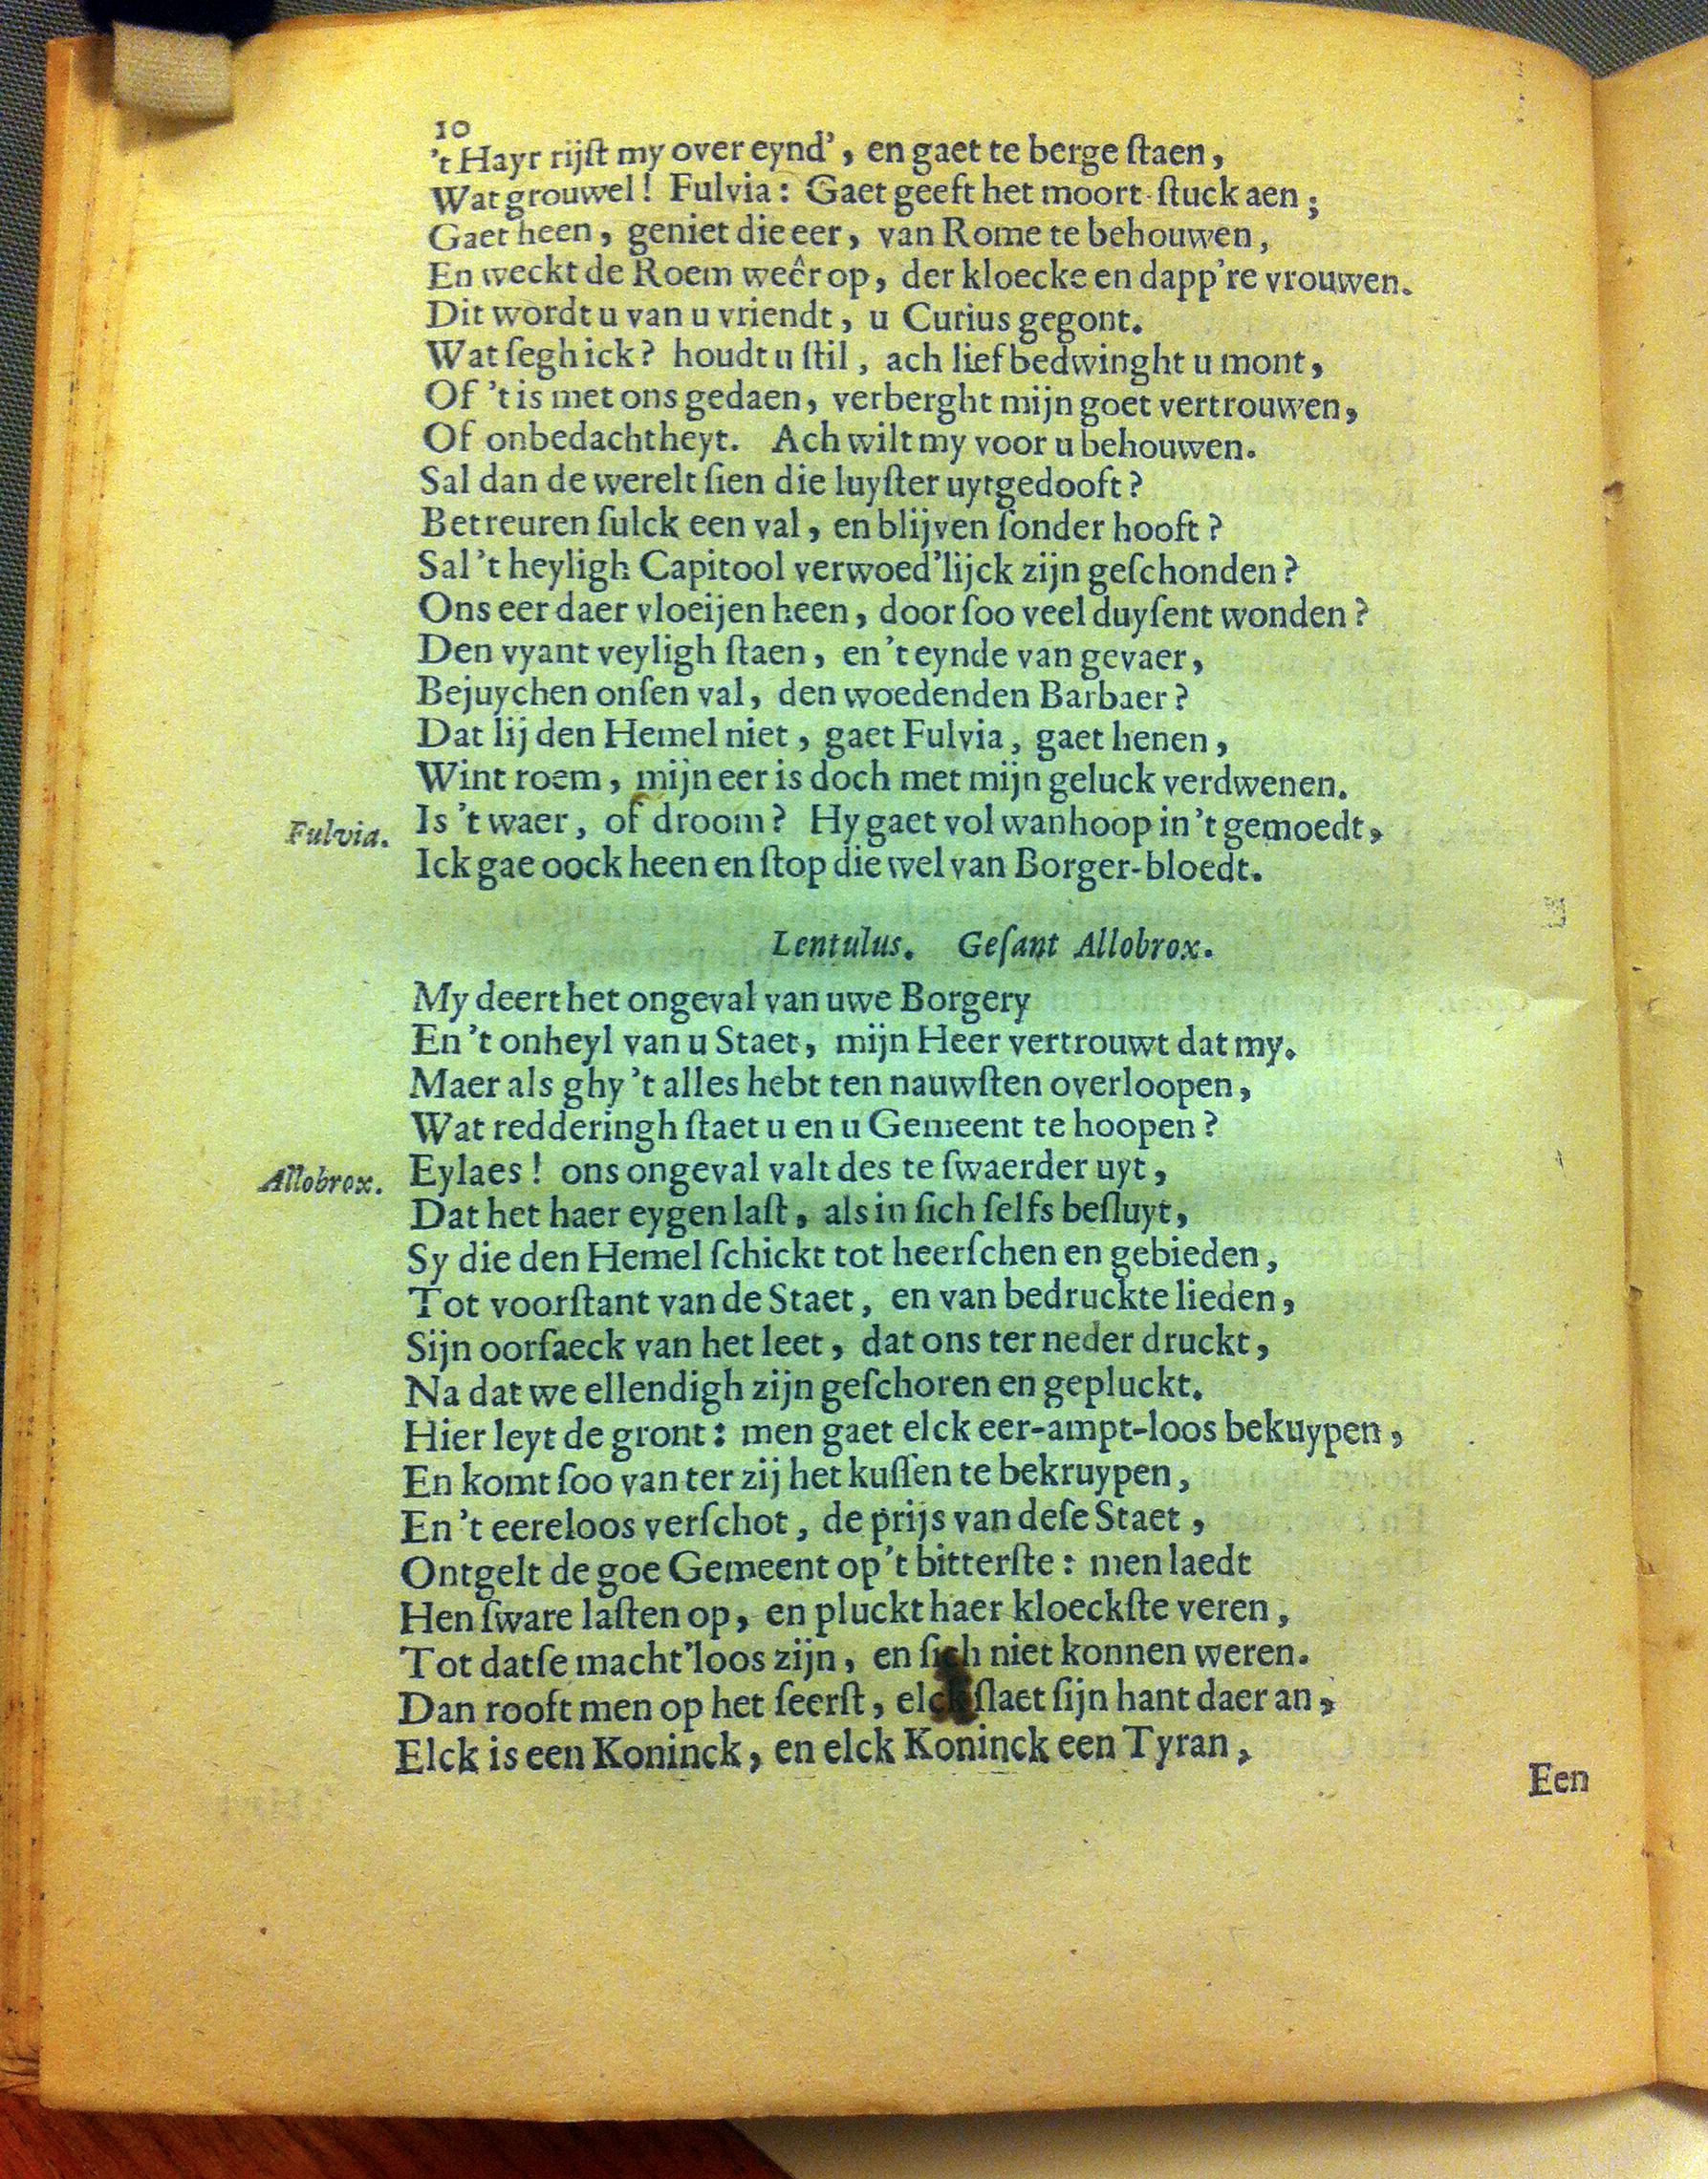 10
't Hayr rijſt my over eynd', en gaet te berge ſtaen,
Wat grouwel! Fulvia: Gaet geeft het moort-ſtuck aen;
Gaet heen, geniet die eer, van Rome te behouwen,
En weckt de Roem weêr op, der kloecke en dapp're vrouwen.
Dit wordt u van u vriendt, u Curius gegont.
Wat ſegh ick? houdt u ſtil, ach lief bedwinght u mont,
Of 't is met ons gedaen, verberght mijn goet vertrouwen,
Of onbedachtheyt. Ach wilt my voor u behouwen.
Sal dan de werelt ſien die luyſter uytgedooft?
Betreuren ſulck een val, en blijven ſonder hooft?
Sal 't heyligh Capitool verwoed'lijck zijn geſchonden?
Ons eer daer vloeijen heen, door ſoo veel duyſent wonden?
Den vyant veyligh ſtaen, en 't eynde van gevaer,
Bejuychen onſen val, den woedenden Barbaer?
Dat lij den Hemel niet, gaet Fulvia, gaet henen,
Wint roem, mijn eer is doch met mijn geluck verdwenen.
Fulvia. Is 't waer, of droom? Hy gaet vol wanhoop in 't gemoedt,
Ick gae oock heen en ſtop die wel van Borger-bloedt.
Lentulus. Geſant Allobrox.
My deert het ongeval van uwe Borgery
En 't onheyl van u Staet, mijn Heer vertrouwt dat my.
Maer als ghy 't alles hebt ten nauwſten overloopen,
Wat redderingh ſtaet u en u Gemeent te hoopen?
Allobrox. Eylaes! ons ongeval valt des te ſwaerder uyt,
Dat het haer eygen laſt, als in ſich ſelfs beſluyt,
Sy die den Hemel ſchickt tot heerſchen en gebieden,
Tot voorſtant van de Staet, en van bedruckte lieden,
Sijn oorſaeck van het leet, dat ons ter neder druckt,
Na dat we ellendigh zijn geſchoren en gepluckt.
Hier leyt de gront: men gaet elck eer-ampt-loos bekuypen,
En komt ſoo van ter zij het kuſſen te bekruypen,
En 't eereloos verſchot, de prijs van deſe Staet,
Ontgelt de goe Gemeent op 't bitterſte: men laedt
Hen ſware laſten op, en pluckt haer kloeckſte veren,
Tot datſe macht'loos zijn, en ſich niet konnen weren.
Dan rooft men op het ſeerſt, elck ſlaet ſijn hant daer an,
Elck is een Koninck, en elck Koninck een Tyran,
Een